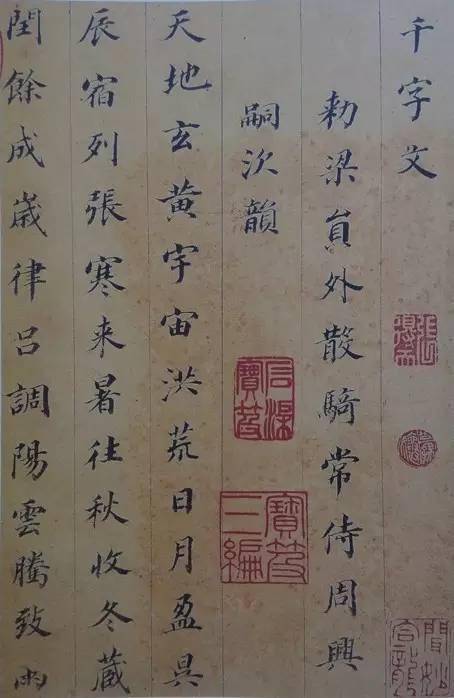 千字文
勅梁員外散騎常侍周興
嗣次韻
天地玄黄宇宙洪荒日月盈昃
辰宿列張寒来暑往秋收冬藏
閏餘成歲律呂調陽雲騰致雨
石渠寶笈
寶笈三編